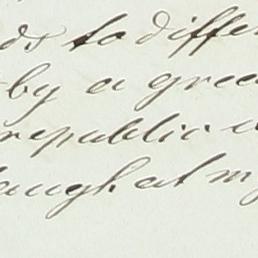 ds to differ
by a grea
republic
laugh at my